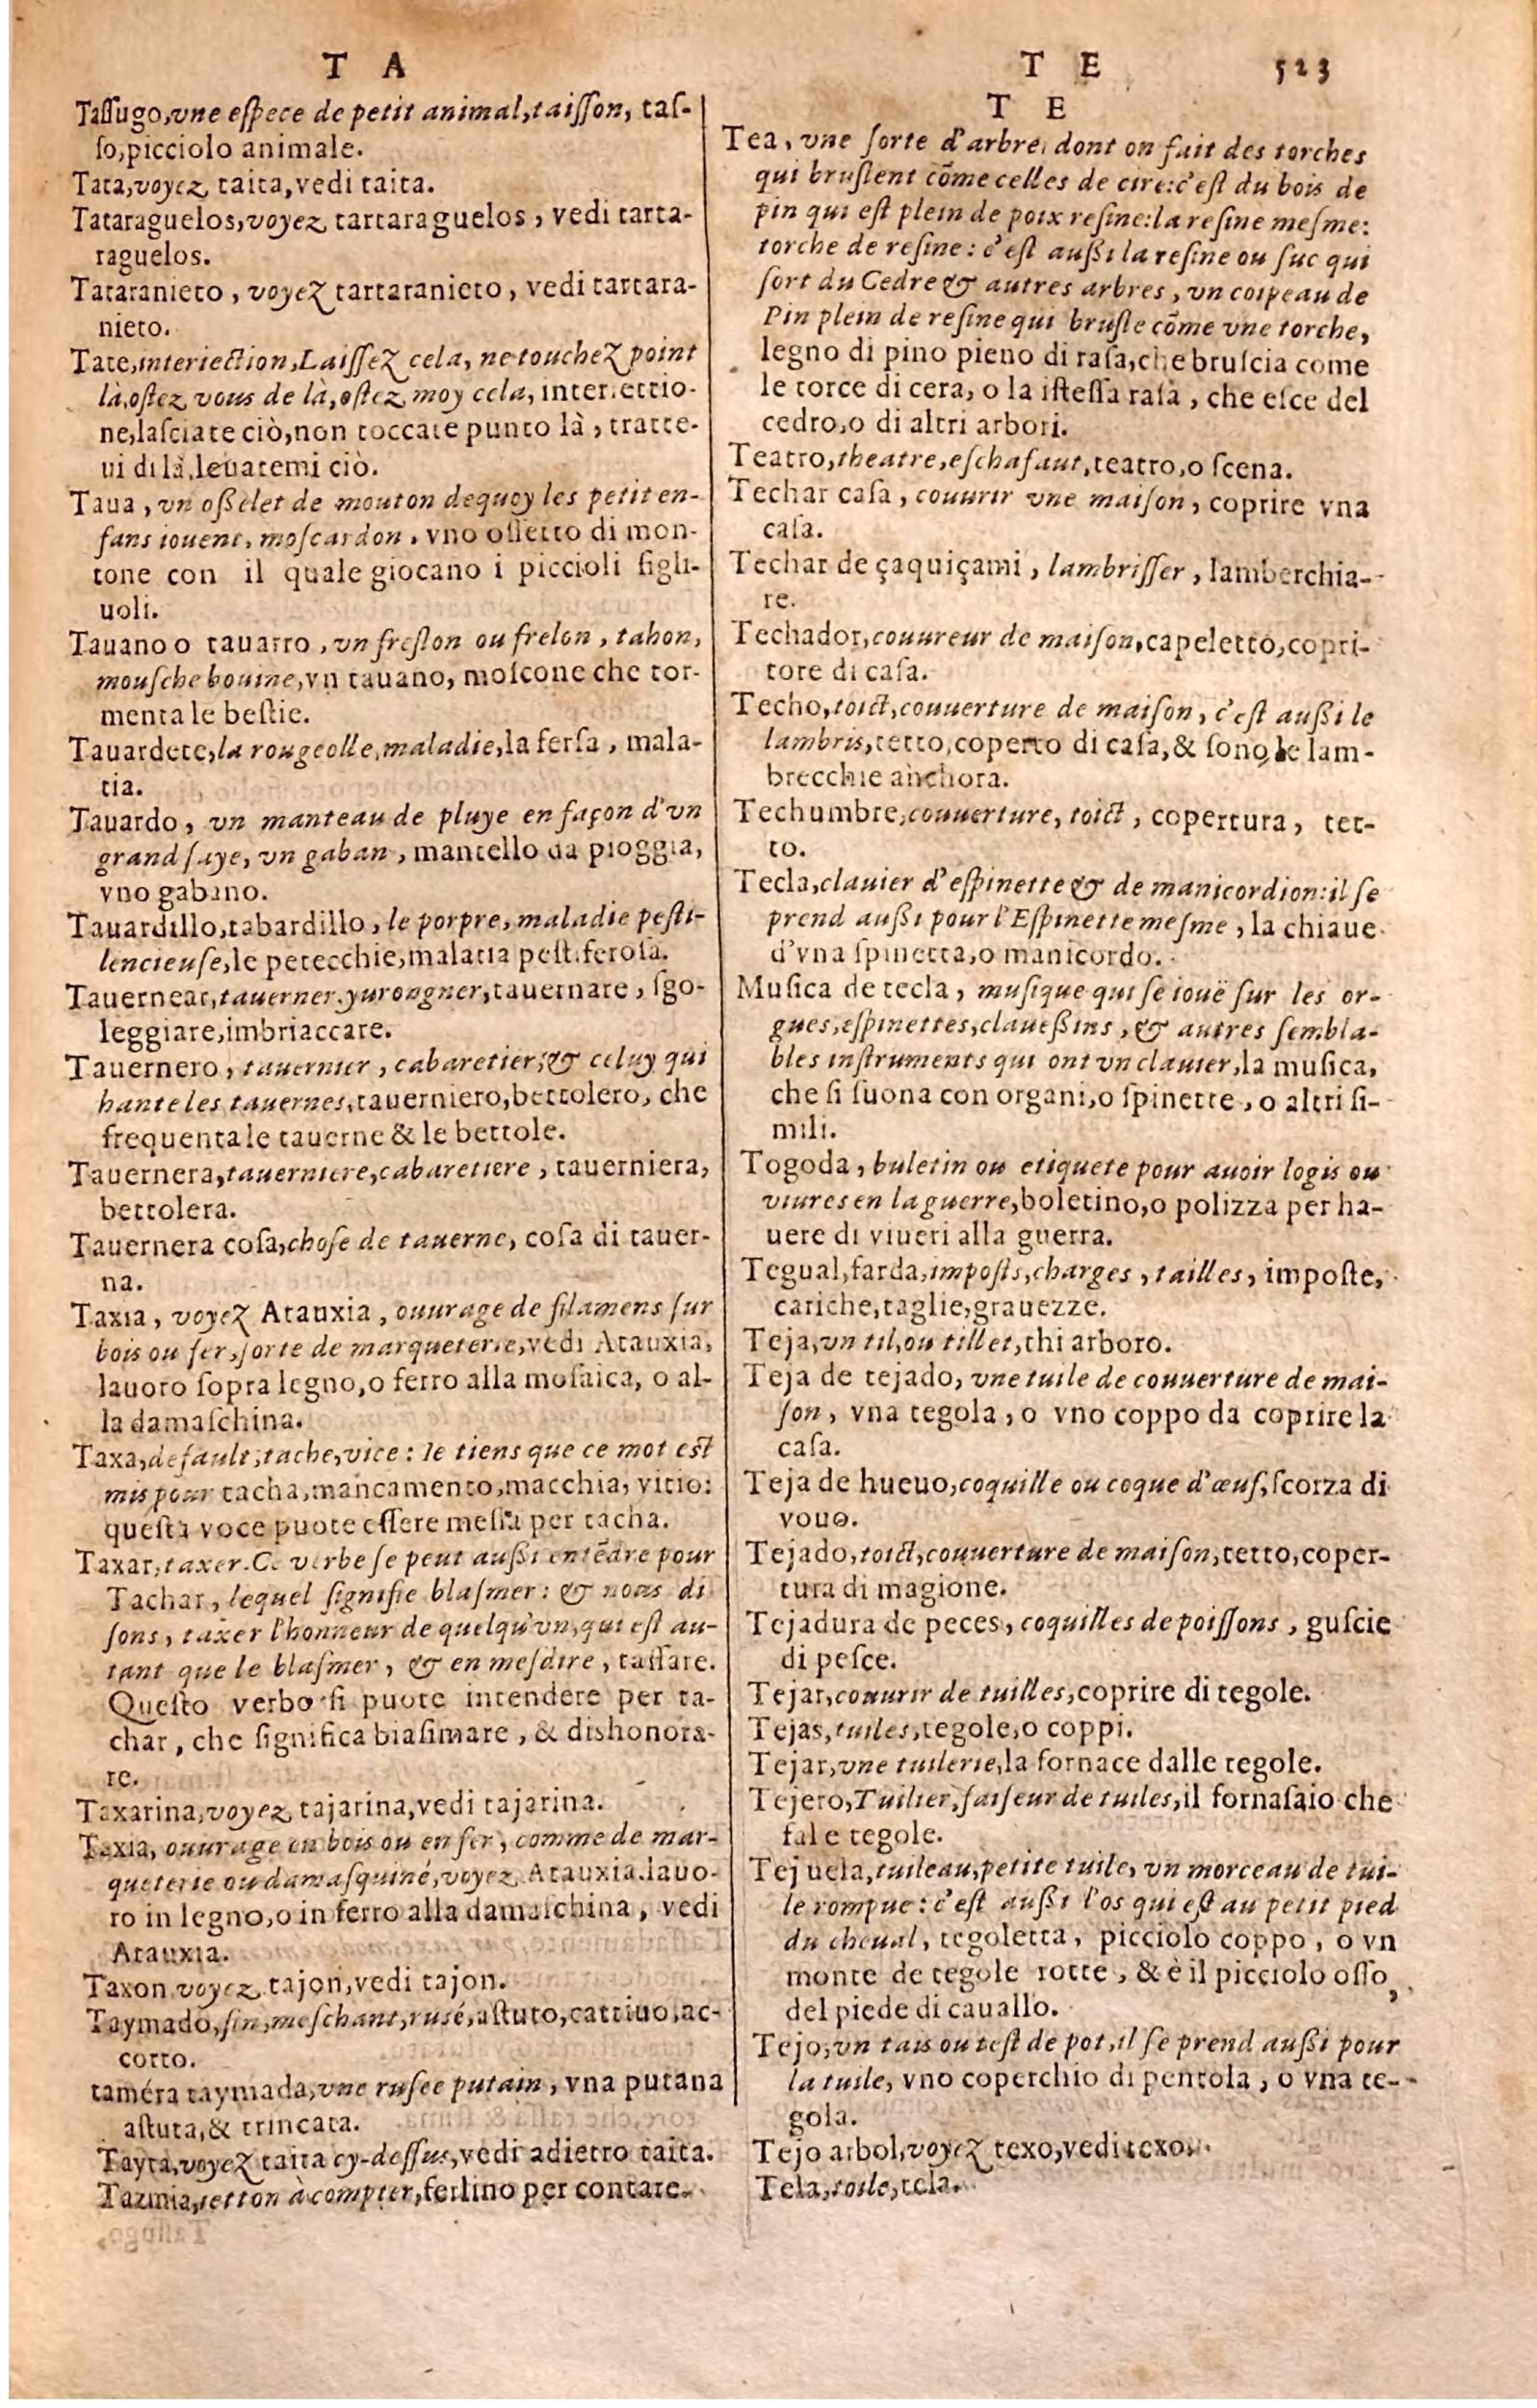 T A
Taſſugo,vne eſpece de petit animal,taiſſon, taſ-
ſo,picciolo animale.
Tata,voyez taita,vedi taita.
Tataraguelos,voyez tartaraguelos, vedi tarta-
raguelos.
Tataranieto, voyez tartaranieto, vedi tartara-
nieto.
Tate,interiection,Laiſſez cela, ne touchez point
là,oſtez vous de là,oſtez moy cela, interiettio-
ne,laſciate ciò,non toccate punto là, tratte-
ui di là,leuatemi ciò.
Taua, vn oßelet de mouton dequoy les petit en-
fans iouent, moſcardon, vno oſſetto di mon-
tone con il quale giocano i piccioli figli-
uoli.
Tauano o tauarro, vn freſlon ou frelon, tahon,
mouſche bouine,vn tauano, moſcone che tor-
menta le beſtie.
Tauardete,la rougeolle,maladie,la ferſa, mala-
tia.
Tauardo, vn manteau de pluye en façon d'vn
grand ſaye, vn gaban, mantello da pioggia,
vno gabano.
Tauardillo,tabardillo, le porpre, maladie peſti-
lencieuſe,le petecchie,malatia peſtiferoſa.
Tauernear,tauerner,yurongner,tauernare, ſgo-
leggiare,imbriaccare.
Tauernero, tauernier, cabaretier,& celuy qui
hante les tauernes,tauerniero,bettolero, che
frequenta le tauerne & le bettole.
Tauernera,tauerniere,cabaretiere, tauerniera,
bettolera.
Tauernera coſa,choſe de tauerne, coſa di tauer-
na.
Taxia, voyez Atauxia, ouurage de filamens ſur
bois ou fer,ſorte de marqueterie,vedi Atauxia,
lauoro ſopra legno,o ferro alla moſaica, o al-
la damaſchina.
Taxa,default,tache,vice: Ie tiens que ce mot eſt
mis pour tacha,mancamento,macchia, vitio:
queſta voce puote eſſere meſſa per tacha.
Taxar,taxer.Ce verbe ſe peut außi entẽdre pour
Tachar, lequel ſignifie blaſmer: & nous di
ſons, taxer l'honneur de quelqu'vn,qui eſt au-
tant que le blaſmer, & en meſdire, taſſare.
Queſto verbo ſi puote intendere per ta-
char, che ſignifica biaſimare, & dishonora-
re.
Taxarina,voyez tajarina,vedi tajarina.
Taxia, ouurage en bois ou en fer, comme de mar-
queterie ou damaſquiné,voyez Atauxia.lauo-
ro in legno,o in ferro alla damaſchina, vedi
Atauxia.
Taxon voyez tajon,vedi tajon.
Taymado,fin,meſchant,ruſé,aſtuto,cattiuo,ac-
corto.
taméra taymada,vne ruſee putain, vna putana
aſtuta,& trincata.
Tayta,voyez taita cy-deſſus,vedi adietro taita.
Tazmia,ietton à compter,ferlino per contare.
T E 523
T E
Tea, vne ſorte d'arbre, dont on fait des torches
qui bruſlent cõme celles de cire:c'eſt du bois de
pin qui eſt plein de poix reſine:la reſine meſme:
torche de reſine: c'eſt außi la reſine ou ſuc qui
ſort du Cedre & autres arbres, vn coipeau de
Pin plein de reſine qui bruſle cõme vne torche,
legno di pino pieno di raſa,che bruſcia come
le torce di cera, o la iſteſſa raſa, che eſce del
cedro,o di altri arbori.
Teatro,theatre,eſchafaut,teatro,o ſcena.
Techar caſa, couurir vne maiſon, coprire vna
caſa.
Techar de çaquiçami, lambriſſer, lamberchia-
re.
Techador,couureur de maiſon,capeletto,copri-
tore di caſa.
Techo,toict,couuerture de maiſon, c'eſt außi le
lambris,tetto,coperto di caſa,& ſono le lam-
brecchie anchora.
Techumbre,couuerture, toict, copertura, tet-
to.
Tecla,clauier d'eſpinette & de manicordion:il ſe
prend außi pour l'Eſpinette meſme, la chiaue
d'vna ſpinetta,o manicordo.
Muſica de tecla, muſique qui ſe iouë ſur les or-
gues,eſpinettes,claueßins, & autres ſembla-
bles inſtruments qui ont vn clauier,la muſica,
che ſi ſuona con organi,o ſpinette, o altri ſi-
mili.
Togoda, buletin ou etiquete pour auoir logis ou
viures en la guerre,boletino,o polizza per ha-
uere di viueri alla guerra.
Tegual,farda,impoſts,charges, tailles, impoſte,
cariche,taglie,grauezze.
Teja,vn til,ou tillet,thi arboro.
Teja de tejado, vne tuile de couuerture de mai-
ſon, vna tegola, o vno coppo da coprire la
caſa.
Teja de hueuo,coquille ou coque d'œuf,ſcorza di
vouo.
Tejado,toict,couuerture de maiſon,tetto,coper-
tura di magione.
Tejadura de peces, coquilles de poiſſons, guſcie
di peſce.
Tejar,couurir de tuilles,coprire di tegole.
Tejas,tuiles,tegole,o coppi.
Tejar,vne tuilerie,la fornace dalle tegole.
Tejero,Tuilier,faiſeur de tuiles,il fornaſaio che
fa le tegole.
Tejuela,tuileau,petite tuile, vn morceau de tui-
le rompue: c'eſt außi l'os qui eſt au petit pied
du cheual, tegoletta, picciolo coppo, o vn
monte de tegole rotte, & è il picciolo oſſo
del piede di cauallo.
Tejo,vn tais ou teſt de pot,il ſe prend außi pour
la tuile, vno coperchio di pentola, o vna te-
gola.
Tejo arbol,voyez texo,vedi texo.
Tela,toile,tela.